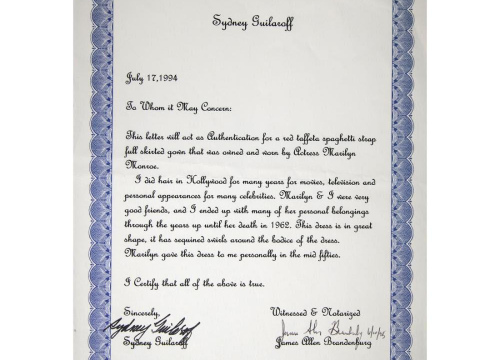 Sydney Guilaroff
July 17, 1994
To Whom it May Concern:
This letter will act as Authentication for a red taffeta spaghetti strap
full skirted gown that was owned and worn by Actress Marilyn
Monroe.
I did hair in Hollywood for many years for movies, television and
personal appearances for many celebrities. Marilyn & I were very
good friends, and I ended up with many of her personal belongings
through the years up until her death in 1962. This dress is in great
shape, it has sequined swirls around the bodice of the dress.
Marilyn gave this dress to me personally in the mid fifties.
I Certify that all of the above is true.
Sincerely, Witnessed & Notarized
Sydney Guilaroff
Sydney Guilaroff James Allen Brandenburg